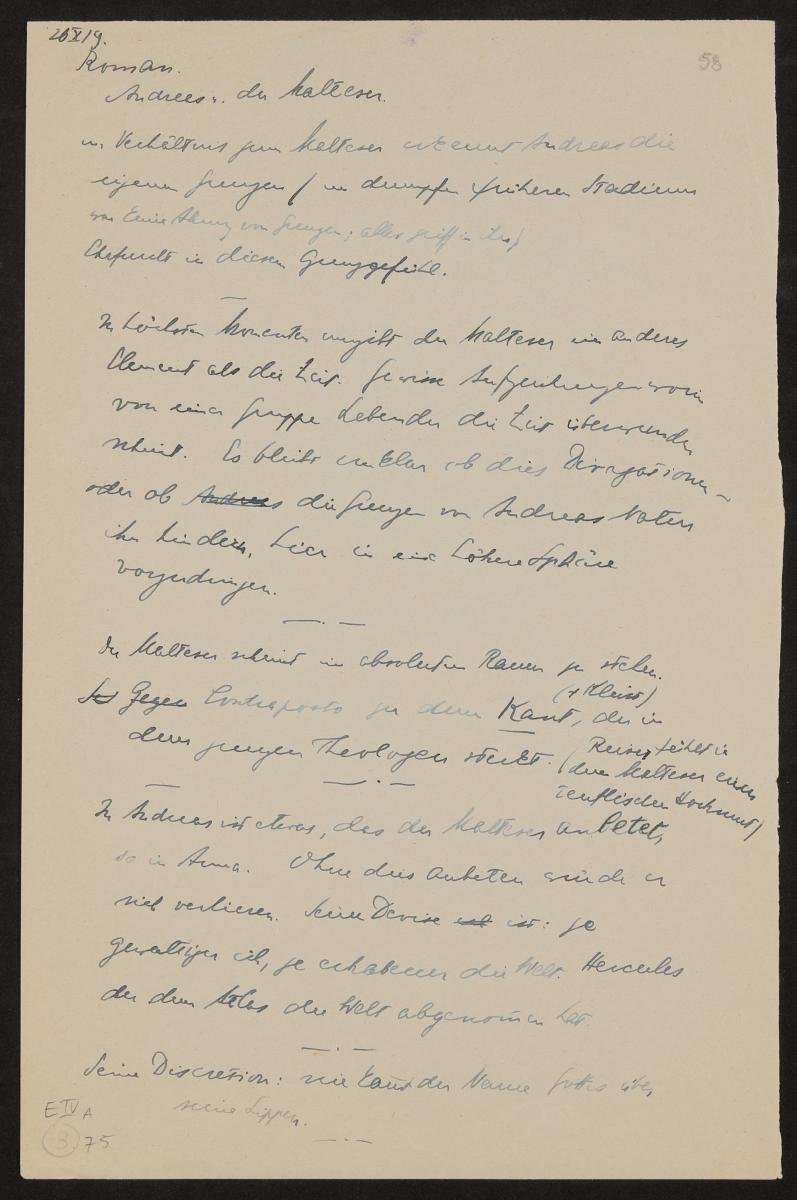 26 X 19.
58
Roman.
Andreas u. der Malteser.
im Verhältnis zum Malteser erkennt Andreas die
eigenen Grenzen / im dumpfen früheren Stadium
war keine Ahnung von Grenzen; alles
Ehrfurcht in diesem Grenzgefühl.
In höchsten Momenten umgibt den Malteser ein anderes
Element als die Zeit. Gewisse Aufzeichnungen worin
von einer Gruppe Lebender die Zeit überwunden
scheint. Es bleibt unklar ob dies Divagationen –
oder ob Andreas die Grenzen von Andreas Natur
ihn hindern, hier in eine höhere Sphäre
vorzudringen.
— . —
Der Malteser scheint im absoluten Raum zu stehen.
(+ Kleist)
Gegen Contraposto zu dem Kant, der in
dem jungen Theologen steckt. (Dieser fühlt in
dem Malteser einen
teuflischen Hochmut)
— . —
In Andreas ist etwas, das der Malteser anbetet,
so in Anna. Ohne dies Anbeten würde er
sich verlieren. Seine Devise ist: je
gewaltiger ich, je erhabener die Welt. Hercules
der dem Atlas die Welt abgenommen hat.
— . —
Seine Discretion: nie kam der Name Gottes über
seine Lippen.
— . —
E IV A
3. 75